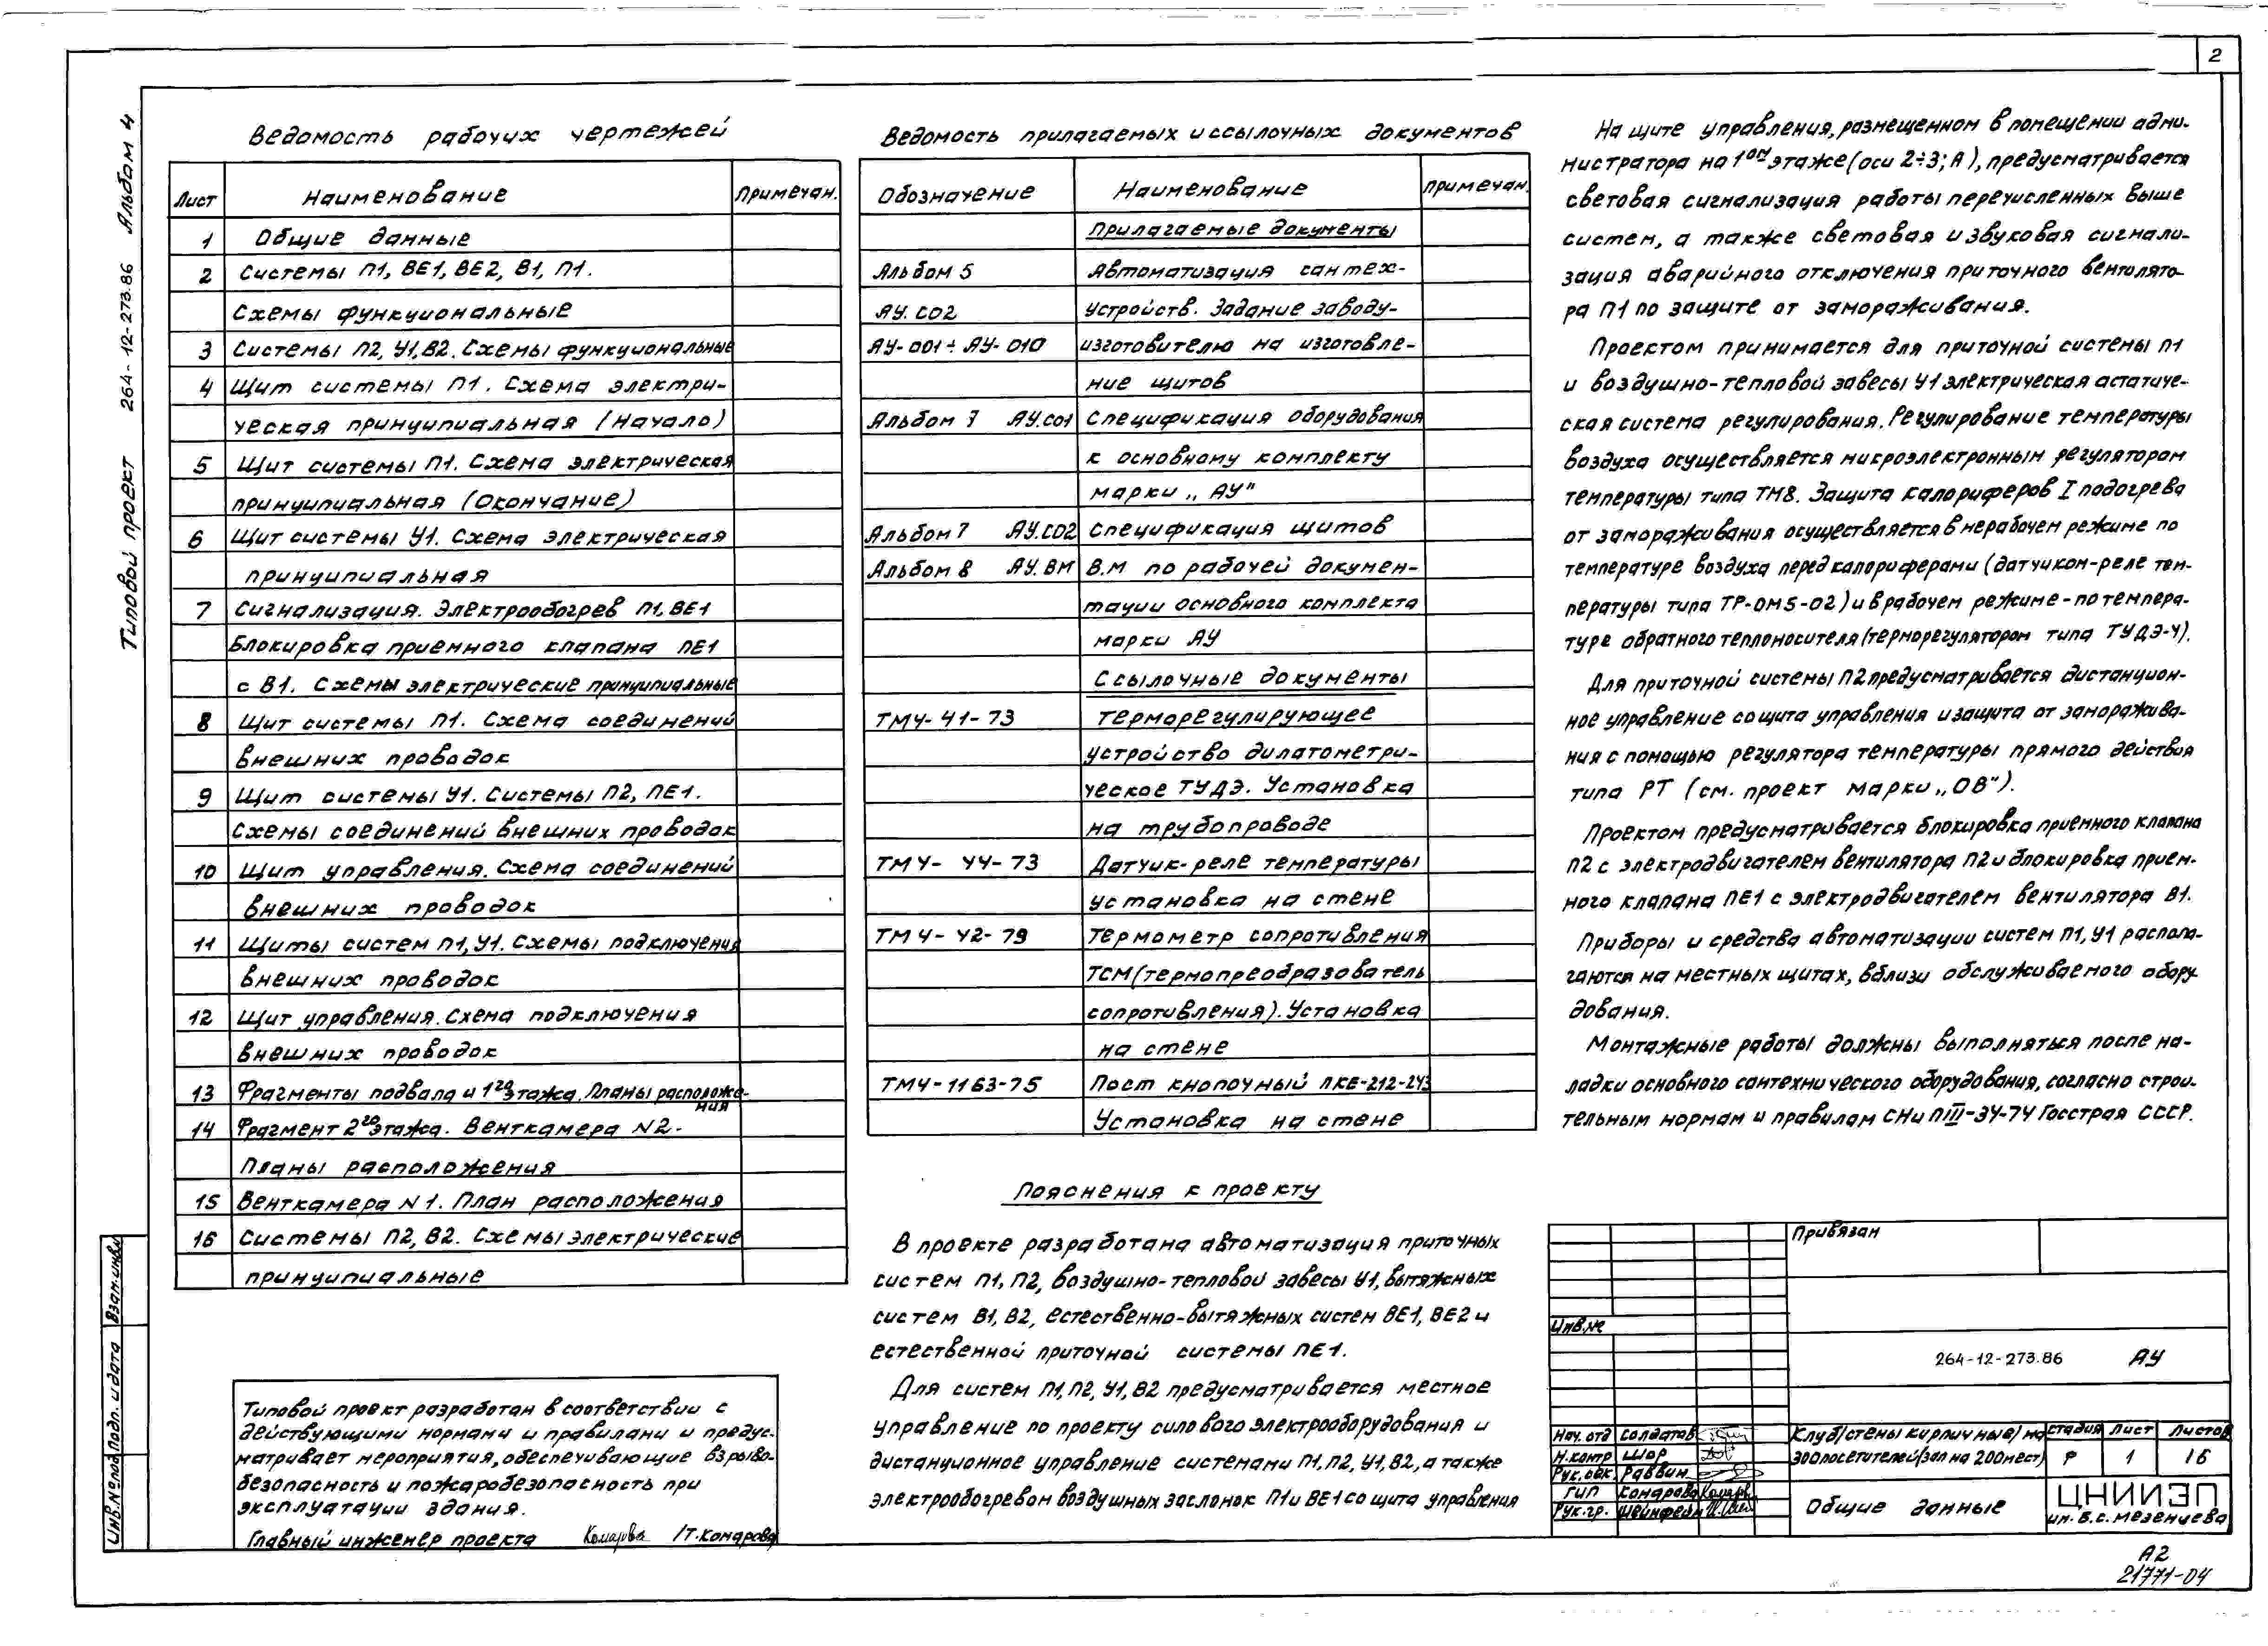 2
Типовой проект 264-12-273.86 Альбом 4
Ведомость рабочих чертежей
Лист Наименование Примечан.
1 Общие данные
2 Системы П1, ВЕ1, ВЕ2, В1, П1.
Схемы функциональные
3 Системы П2, У1, В2. Схемы функциональные
4 Щит системы П1. Схема электри-
ческая принципиальная (Начало)
5 Щит системы П1. Схема электрическая
принципиальная (Окончание)
6 Щит системы У1. Схема электрическая
принципиальная
7 Сигнализация. Электрообогрев П1, ВЕ1
Блокировка приемного клапана ПЕ1
с В1. Схемы электрические принципиальные
8 Щит системы П1. Схема соединений
внешних проводок
9 Щит системы У1. Системы П2, ПЕ1.
Схемы соединений внешних проводок
10 Щит управления. Схема соединений
внешних проводок
11 Щиты систем П1, У1. Схемы подключения
внешних проводок
12 Щит управления. Схема подключения
внешних проводок
13 Фрагменты подвала и 1го этажа. Планы расположе-
ния
14 Фрагмент 2го этажа. Венткамера N2.
Планы расположения
15 Венткамера N1. План расположения
16 Системы П2, В2. Схемы электрические
принципиальные
Типовой проект разработан в соответствии с
действующими нормами и правилами и предус-
матривает мероприятия, обеспечивающие взрыво-
безопасность и пожаробезопасность при
эксплуатации здания.
Главный инженер проекта Комарова /Т. Комарова
Ведомость прилагаемых и ссылочных документов
Обозначение Наименование Примечан.
Прилагаемые документы
Альбом 5 Автоматизация сантех-
АУ. СО2 устройств. Задание заводу-
АУ-001÷АУ-010 изготовителю на изготовле-
ние щитов
Альбом 7 АУ.СО1 Спецификация оборудования
к основному комплекту
марки „АУ"
Альбом 7 АУ.СО2 Спецификация щитов
Альбом 8 АУ.ВМ В.М по рабочей докумен-
тации основного комплекта
марки АУ
Ссылочные документы
ТМ4-41-73 Терморегулирующее
устройство дилатометри-
ческое ТУДЭ. Установка
на трубопроводе
ТМ4-44-73 Датчик-реле температуры
установка на стене
ТМ4-42-79 Термометр сопротивления
ТСМ (термопреобразователь
сопротивления). Установка
на стене
ТМ4-1163-75 Пост кнопочный ПКЕ-212-2У3
Установка на стене
Пояснения к проекту
В проекте разработана автоматизация приточных
систем П1, П2, воздушно-тепловой завесы У1, вытяжных
систем В1, В2, естественно-вытяжных систем ВЕ1, ВЕ2 и
естественной приточной системы ПЕ1.
Для систем П1, П2, У1, В2 предусматривается местное
управление по проекту силового электрооборудования и
дистанционное управление системами П1, П2, У1, В2, а также
электрообогревом воздушных заслонок П1 и ВЕ1 со щита управления
На щите управления, размещенном в помещении адми-
нистратора на 1ом этаже (оси 2÷3; А), предусматривается
световая сигнализация работы перечисленных выше
систем, а также световая и звуковая сигнали-
зация аварийного отключения приточного вентилято-
ра П1 по защите от замораживания.
Проектом принимается для приточной системы П1
и воздушно-тепловой завесы У1 электрическая астатиче-
ская система регулирования. Регулирование температуры
воздуха осуществляется микроэлектронным регулятором
температуры типа ТМ8. Защита калориферов I подогрева
от замораживания осуществляется в нерабочем режиме по
температуре воздуха перед калориферами (датчиком-реле тем-
пературы типа ТР-ОМ5-02) и в рабочем режиме - по темпера-
туре обратного теплоносителя (терморегулятором типа ТУДЭ-4).
Для приточной системы П2 предусматривается дистанцион-
ное управление со щита управления и защита от заморажива-
ния с помощью регулятора температуры прямого действия
типа РТ (см. проект марки „ОВ").
Проектом предусматривается блокировка приемного клапана
П2 с электродвигателем вентилятора П2 и блокировка прием-
ного клапана ПЕ1 с электродвигателем вентилятора В1.
Приборы и средства автоматизации систем П1, У1 распола-
гаются на местных щитах, вблизи обслуживаемого обору
дования.
Монтажные работы должны выполняться после на-
ладки основного сантехнического оборудования, согласно строи-
тельным нормам и правилам СНиПIII-34-74 Госстрая СССР.
Привязан
Инв.№
264-12-273.86 АУ
Нач. отд Солдатов
Н.контр Шор
Рук. обк. Раввин
ГИП Комарова
Рук. гр. Шейнфеин
Клуб (стены кирпичные) на
300 посетителей (зал на 200 мест)
Стадия Лист Листов
Р 1 16
Общие данные
ЦНИИЭП
им. Б.С. Мезенцева
Инв.№ под Подп. и дата Взам.инв№
А2
21771-04